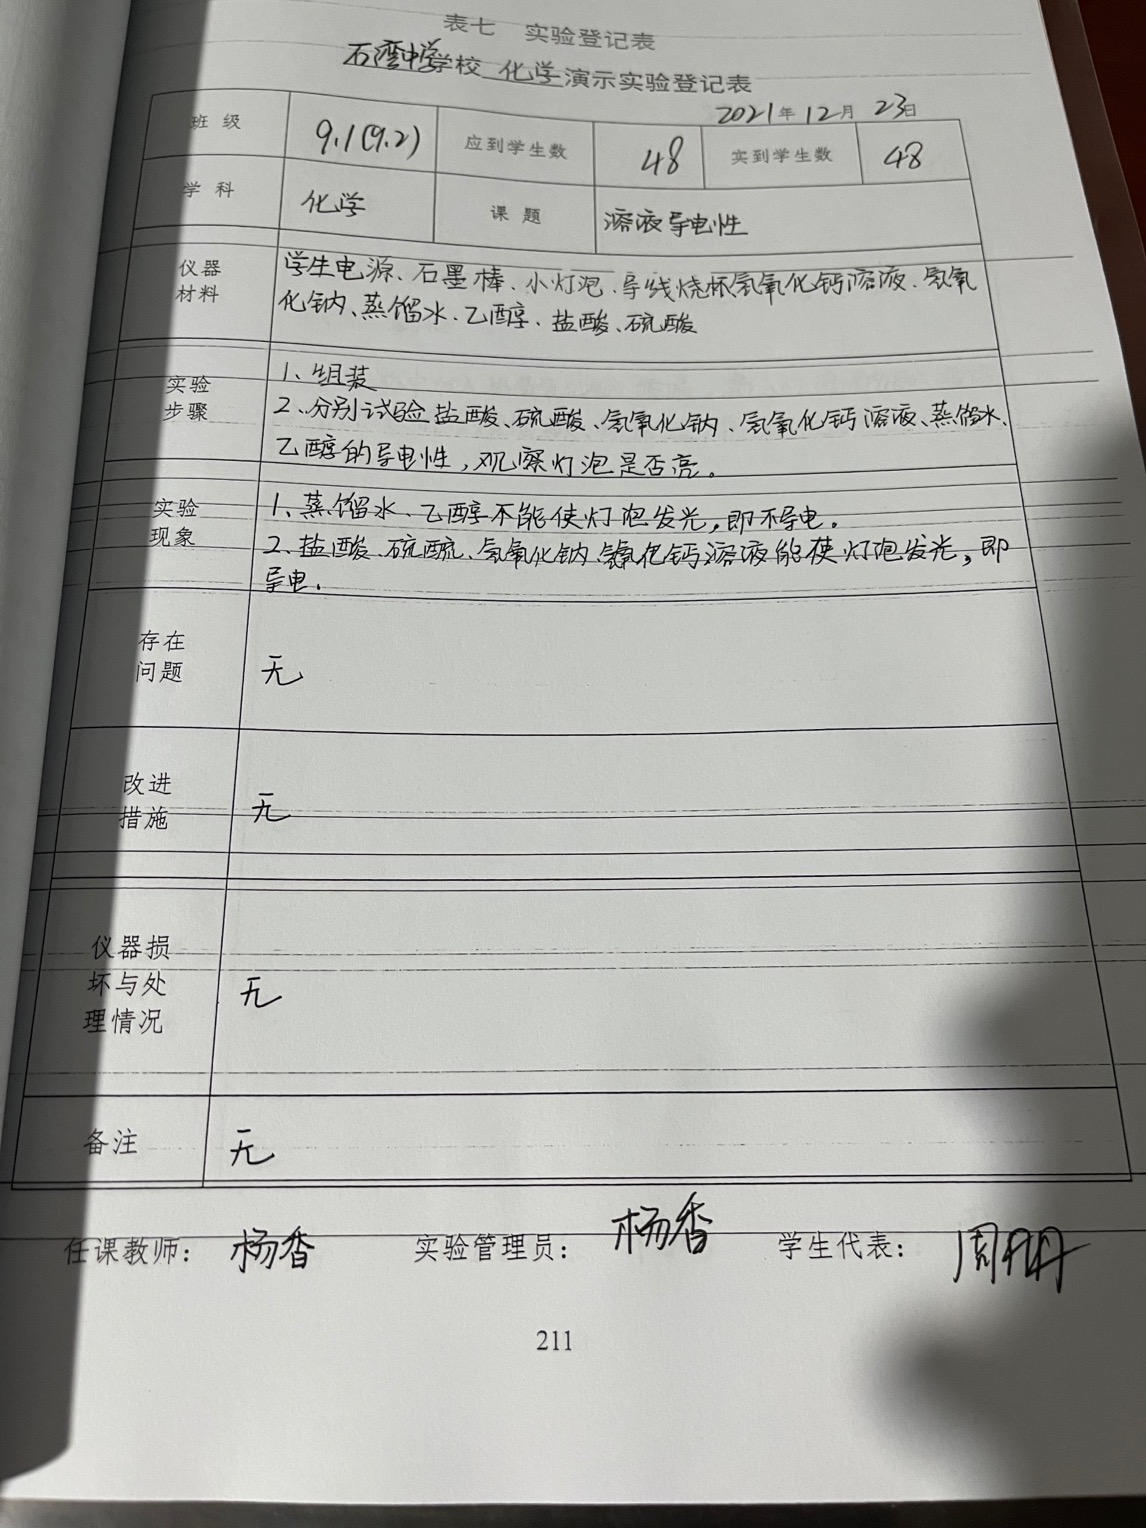 表七 实验登记表
石湾中学学校 化学演示实验登记表
2021年12月23日
班级 9.1(9.2) 应到学生数 48 实到学生数 48
学科 化学 课题 溶液导电性
仪器材料 学生电源、石墨棒、小灯泡、导线烧杯氢氧化钙溶液、氢氧
化钠、蒸馏水、乙醇、盐酸、硫酸
实验步骤 1、组装
2、分别试验盐酸、硫酸、氢氧化钠、氢氧化钙溶液、蒸馏水、
乙醇的导电性，观察灯泡是否亮。
实验现象 1、蒸馏水、乙醇不能使灯泡发光，即不导电。
2、盐酸、硫酸、氢氧化钠、氢氧化钙溶液能使灯泡发光，即
导电。
存在问题 无
改进措施 无
仪器损坏与处理情况 无
备注 无
任课教师： 杨香 实验管理员： 杨香 学生代表： 周
211